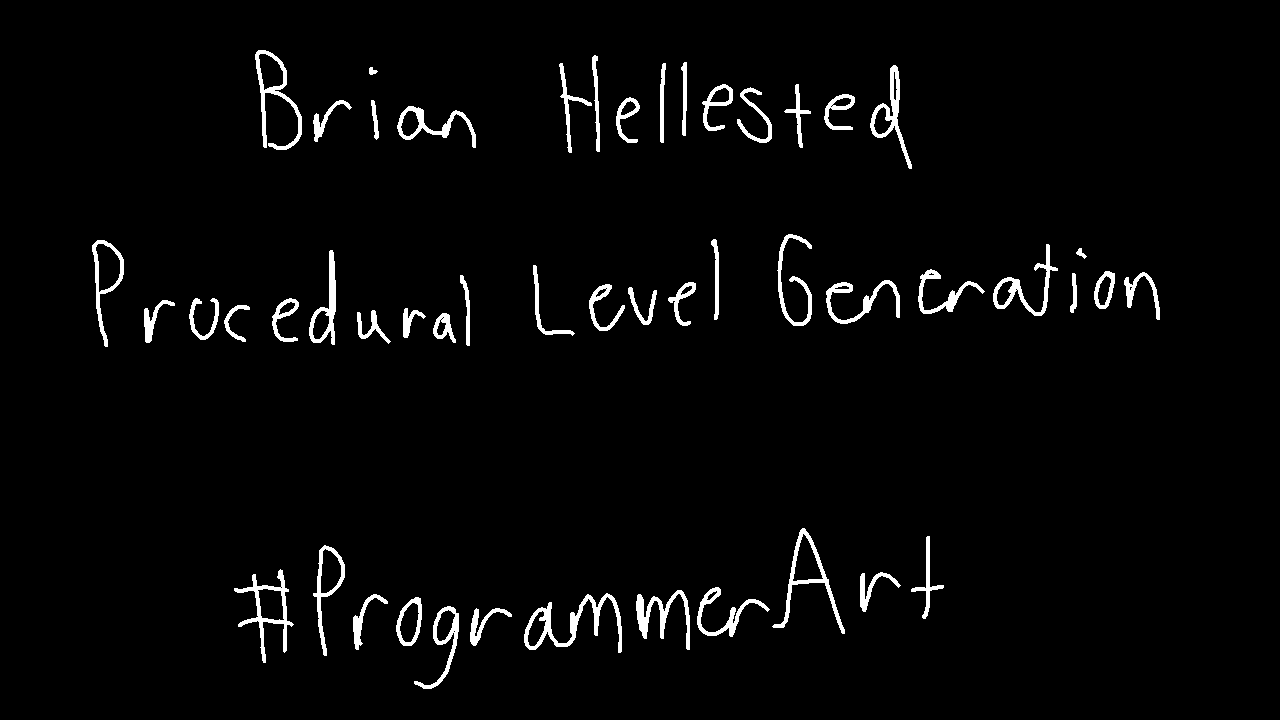 Brian Hellested
Procedural Level Generation
#ProgrammerArt